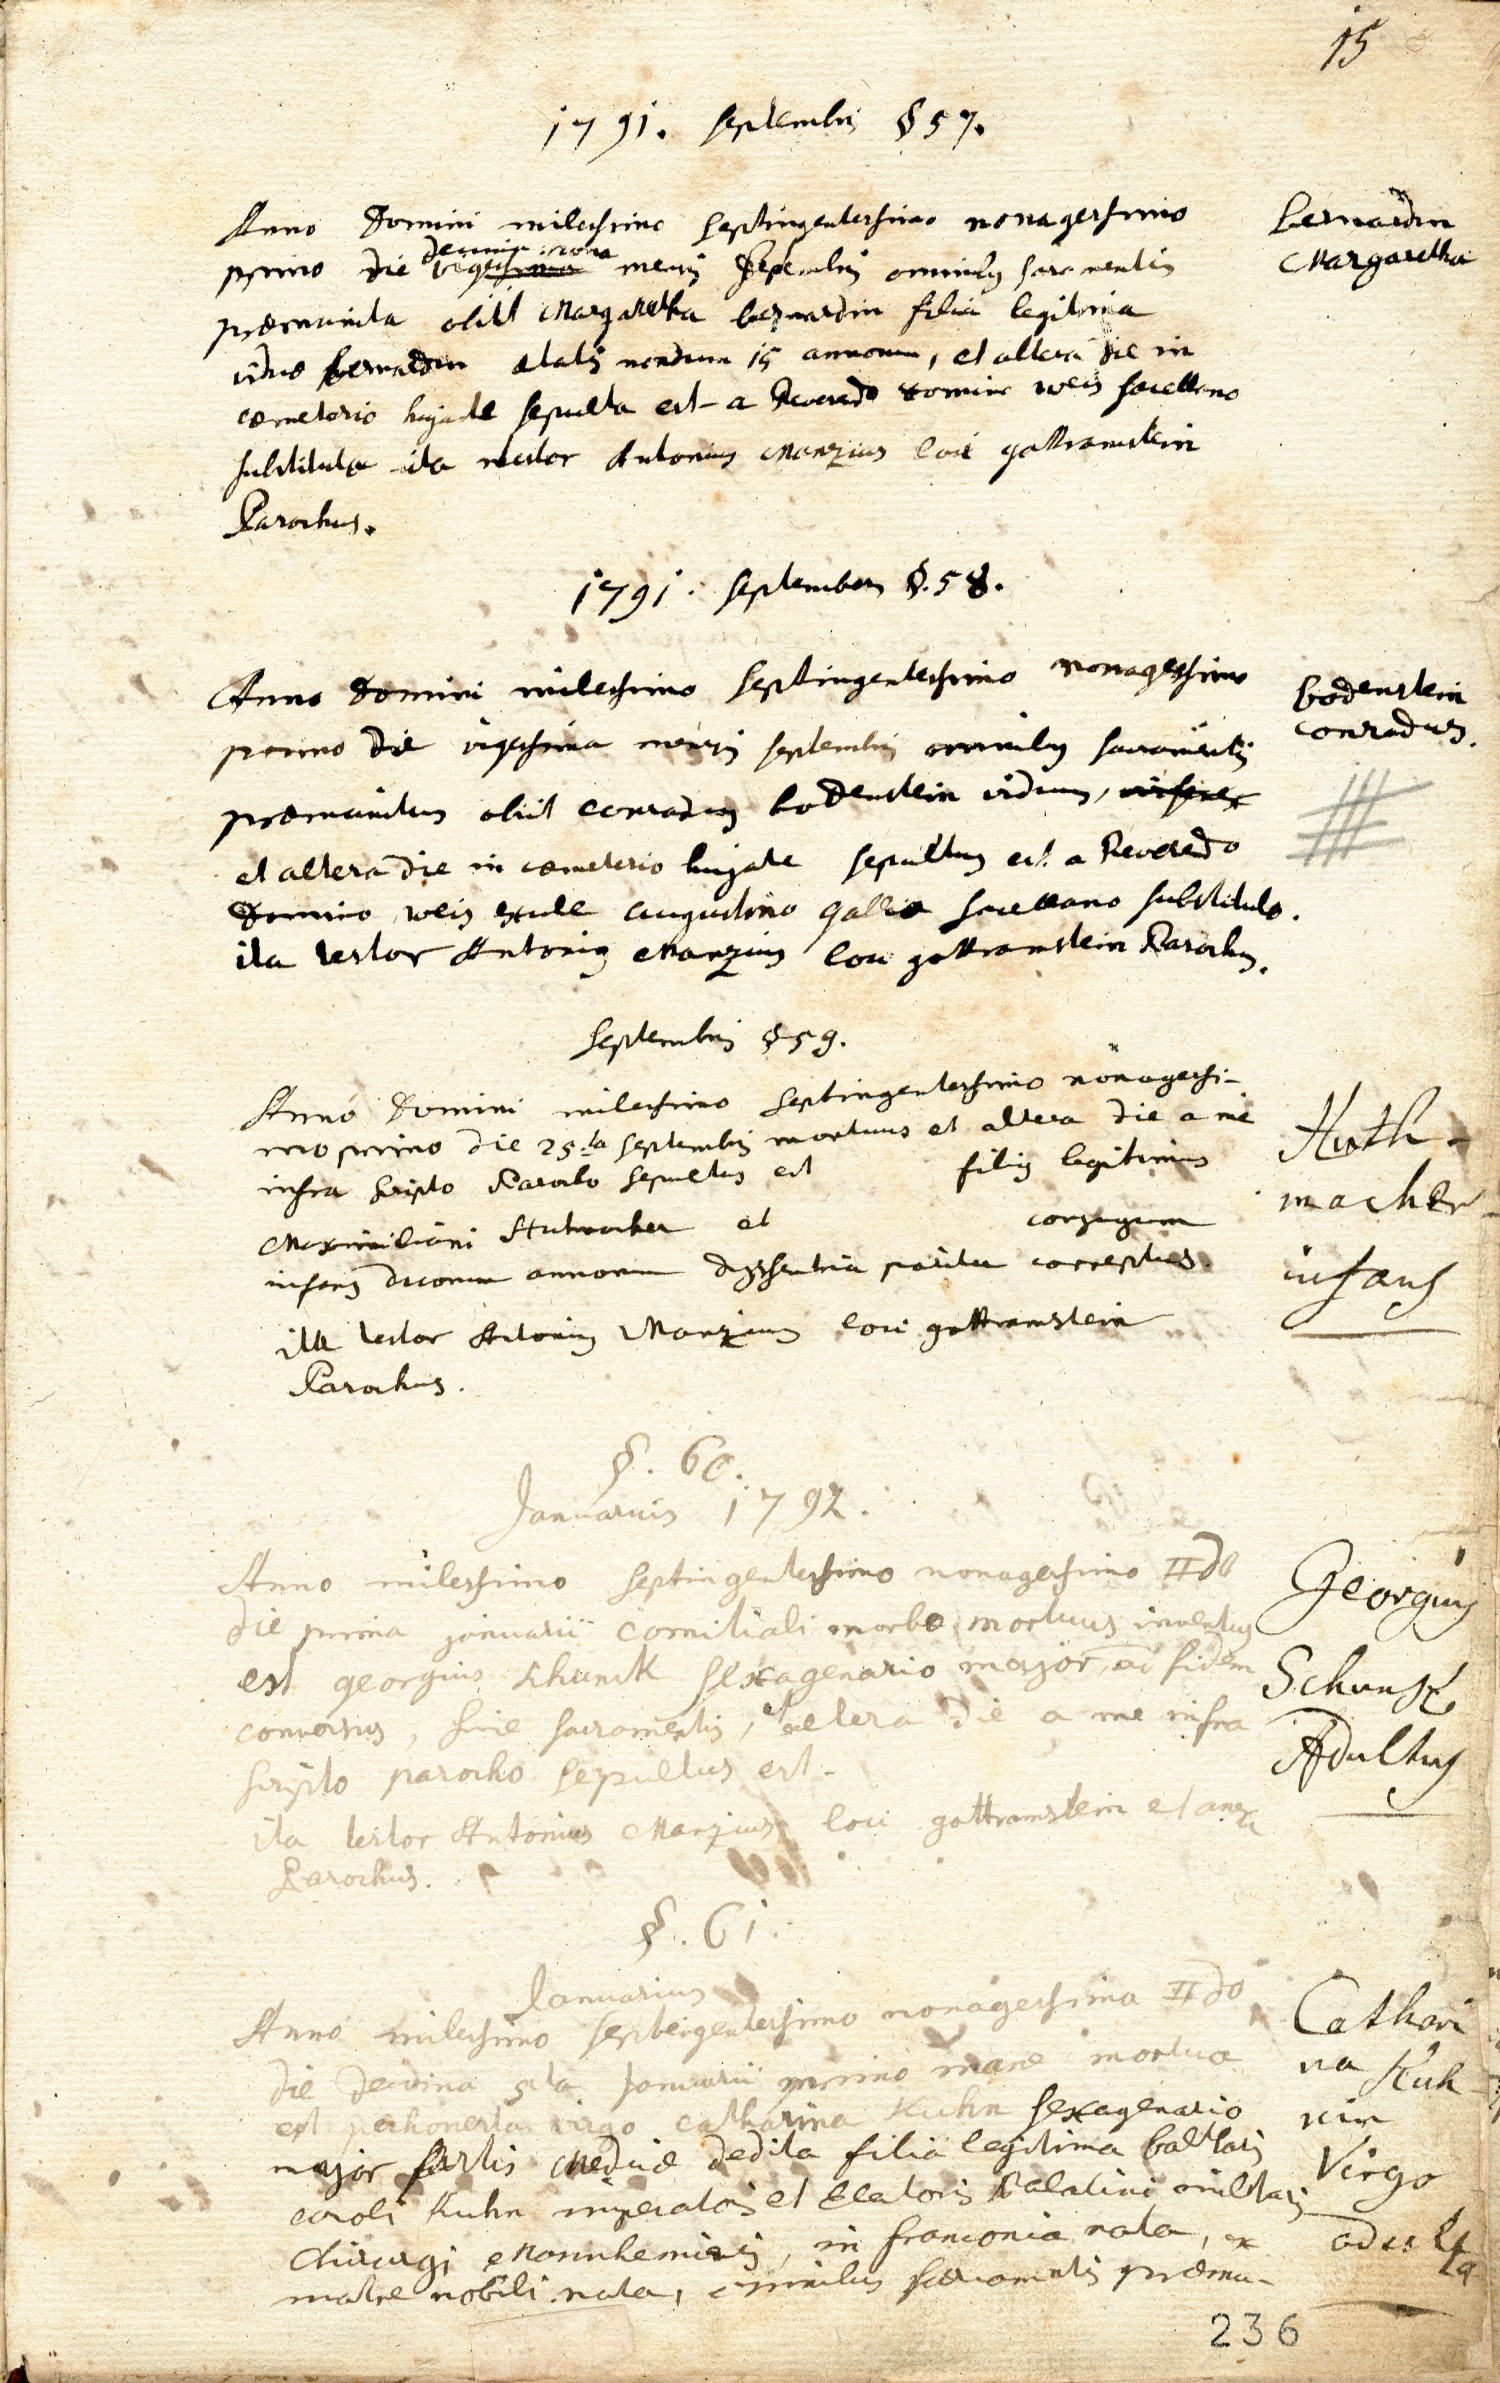 15
1791. Septembris § 57.
Anno Domini milessimo septingentessimo nonagessimo
primo die decima nona vigessima mensis septembris omnibus sacramentis
præmunita obiit Margaretha bernardin filia legitima
viduæ bernardin ætatis nondum 15 annorum, et altera die in
cœmeterio hujate sepulta est a Reverendo domino weis sacellano
substituto ita testor Antonius Manzius loci gottramstein
Parochus.
Bernardin
Margaretha
1791. septembris §. 58.
Anno Domini milessimo septingentessimo nonagessimo
primo die vigessima mensis septembris omnibus sacramentis
præmunitus obiit conradus bodenstein viduus,
et altera die in cœmeterio hujate sepultus est a Reverendo
Domino weis exule augustino gallo sacellano substituto.
ita testor Antonius Manzius loci gottramstein Parochus.
bodenstein
conradus.
Septembris § 59.
Anno Domini milessimo septingentessimo nonagessi-
mo primo die 25ta septembris mortuus et altera die a me
infra scripto Parocho sepultus est filius legitimus
Maximiliani Hutmacher et conjugum
infans duorum annorum dyssentria pariter correptus.
ita testor Antonius Manzius loci gottramstein
Parochus.
Huth-
macher
infans
§. 60.
Januarius 1792.
Anno milessimo septingentessimo nonagessimo IIdo
die prima januarii comitiali morbo mortuus inventus
est georgius schunck sexagenario major, ad fidem
conversus, sine sacramentis, et altera die a me infra
scripto parocho sepultus est.
ita testor Antonius Manzius loci gottramstein et anex
Parochus.
Georgius
Schunck
Adultus
§. 61.
Januarius
Anno milessimo septingentessimo nonagessimo IIdo
die decima 5ta Januarii primo mane mortua
est perhonesta virgo catharina Kuhn sexagenario
major artis Medicæ dedita filia legitima baltasi
caroli Kuhn imperatoris et Electoris Palatini militaris
chirurgi Mannhemiensis, in franconia nata, ex
matre nobili nata, omnibus sacramentis præmu-
Cathari
na Kuh
nin
Virgo
adulta
236